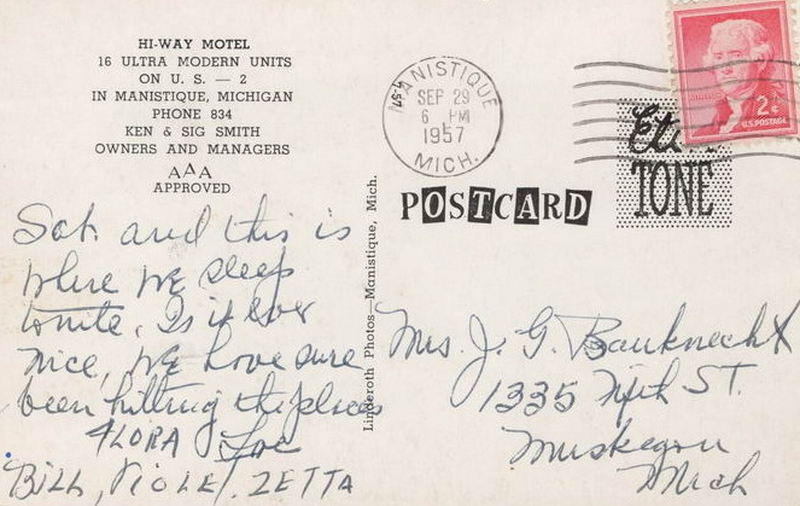 HI-WAY MOTEL
16 ULTRA MODERN UNITS
ON U. S. — 2
IN MANISTIQUE, MICHIGAN
PHONE 834
KEN & SIG SMITH
OWNERS AND MANAGERS
AAA
APPROVED
Sat. and this is
where we sleep
tonite, Is it ever
nice, We have sure
been hitting the places
FLORA Joe
BILL, VIOLET. ZETTA
Linderoth Photos—Manistique, Mich.
MANISTIQUE
SEP 29
6 PM
1957
MICH.
POSTCARD
2¢
U.S. POSTAGE
TONE
Mrs. J. G. Bauknecht
1335 Fifth ST.
Muskegon
Mich